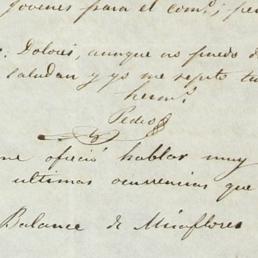 jovenes para el com.o; pe
Dolores, aunque no puedo d
saludan y yo me repito tu
herm.o
Pedro
me ofreció hablar muy
ultimas ocurrencias que
Balance de Miraflores